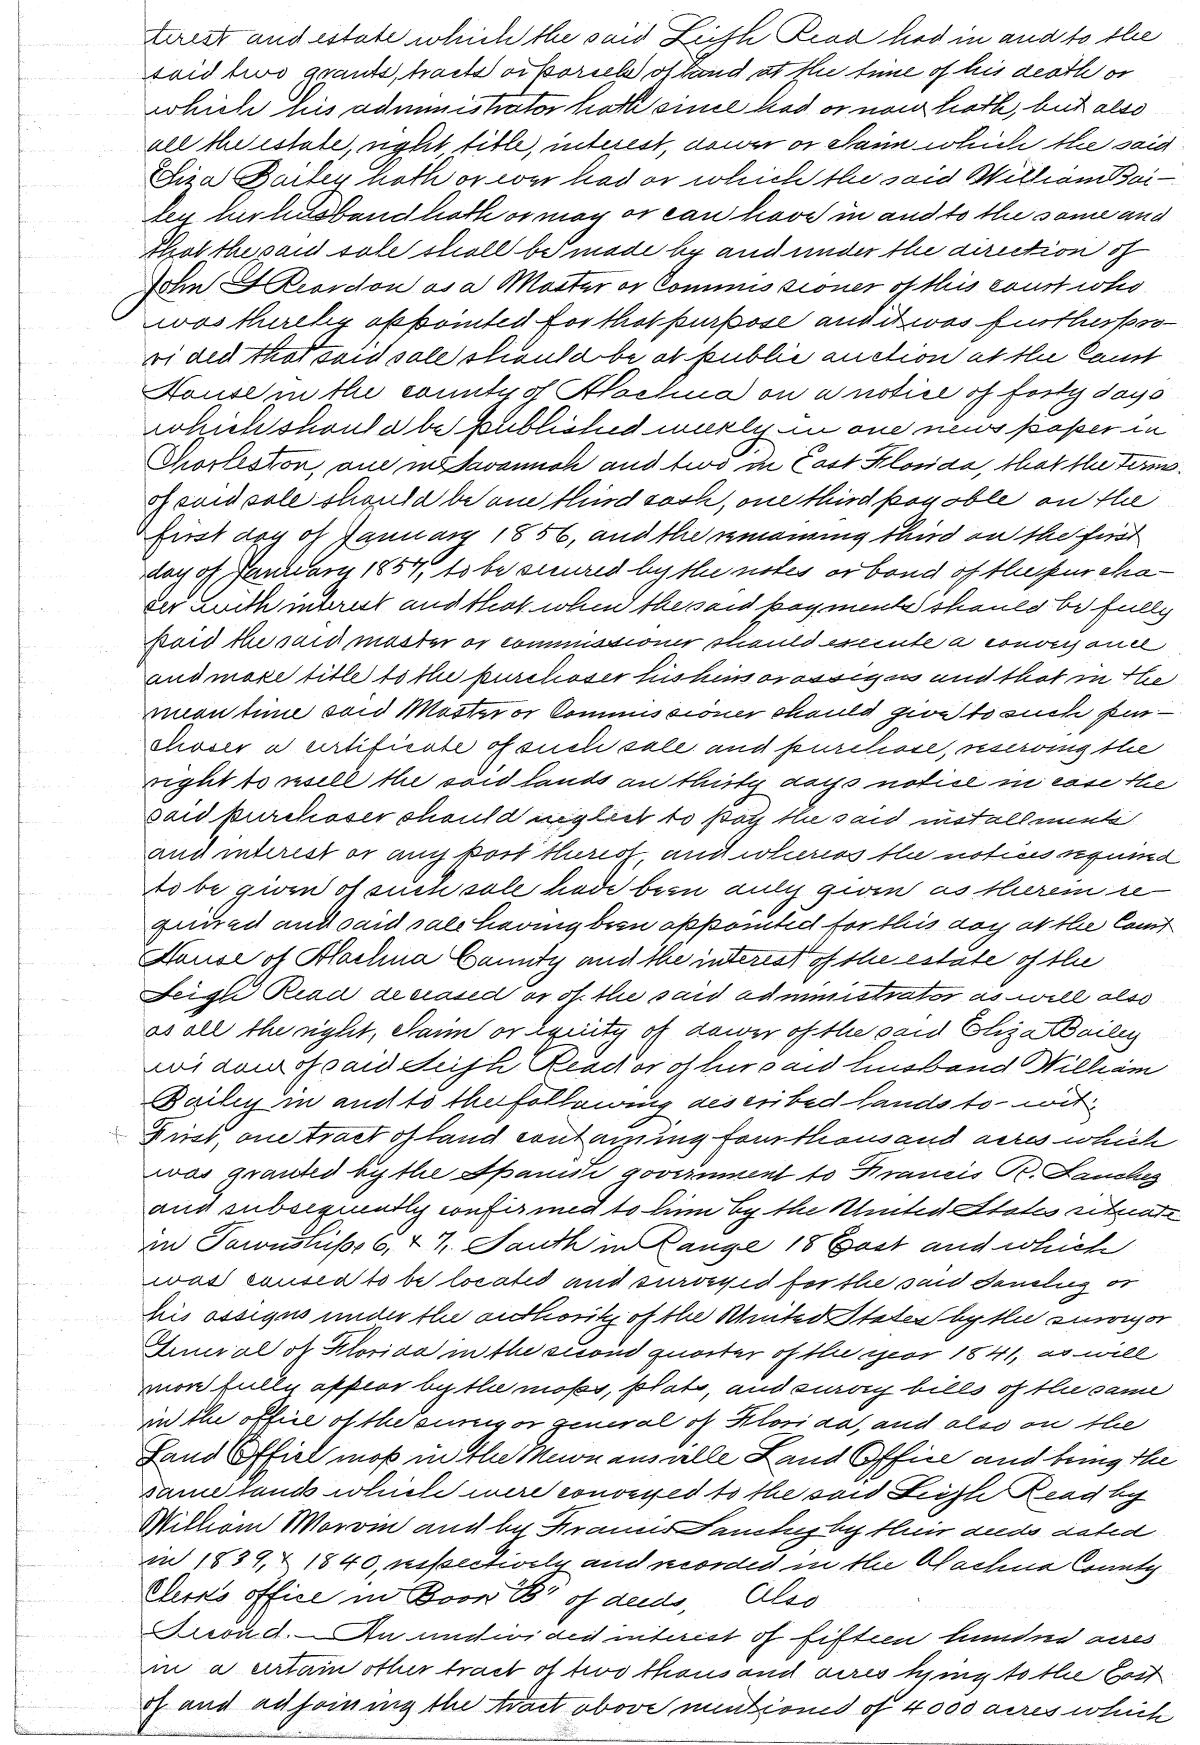 terest and estate which the said Leigh Read had in and to the
said two grants, tracts or parcels of land at the time of his death or
which his administrator hath since had or now hath, but also
all the estate, right, title, interest, dower or claim which the said
Eliza Bailey hath or ever had or which the said William Bai-
ley her husband hath or may or can have in and to the same and
that the said sale shall be made by and under the direction of
John G Reardon as a Master or Commissioner of this court who
was thereby appointed for that purpose and it was further pro-
vided that said sale should be at public auction at the Court
House in the county of Alachua on a notice of forty days
which should be published weekly in one news paper in
Charleston, one in Savannah and two in East Florida, that the terms
of said sale should be one third cash, one third payable on the
first day of January 1856, and the remaining third on the first
day of January 1857, to be secured by the notes or bond of the purcha-
ser with interest and that when the said payments should be fully
paid the said master or commissioner should execute a conveyance
and make title to the purchaser his heirs or assigns and that in the
mean time said Master or Commissioner should give to such pur-
chaser a certificate of such sale and purchase, reserving the
right to resell the said lands on thirty days notice in case the
said purchaser should neglect to pay the said installments
and interest or any part thereof, and whereas the notices required
to be given of such sale have been duly given as therein re-
quired and said sale having been appointed for this day at the Court
House of Alachua County and the interest of the estate of the
Leigh Read deceased or of the said administrator as well also
as all the right, claim or equity of dower of the said Eliza Bailey
widow of said Leigh Read or of her said husband William
Bailey in and to the following described lands to-wit:
First, one tract of land containing four thousand acres which
was granted by the Spanish government to Francis R. Sanchez
and subsequently confirmed to him by the United States situate
in Townships 6, & 7, South in Range 18 East and which
was caused to be located and surveyed for the said Sanchez or
his assigns under the authority of the United States by the surveyor
General of Florida in the second quarter of the year 1841, as will
more fully appear by the maps, plats, and survey bills of the same
in the office of the surveyor general of Florida, and also on the
Land Office map in the Newnansville Land Office and being the
same lands which were conveyed to the said Leigh Read by
William Marvin and by Francis Sanchez by their deeds dated
in 1839, & 1840, respectively and recorded in the Alachua County
Clerk's office in Book "B" of deeds, Also
Second.- An undivided interest of fifteen hundred acres
in a certain other tract of two thousand acres lying to the East
of and adjoining the tract above mentioned of 4000 acres which